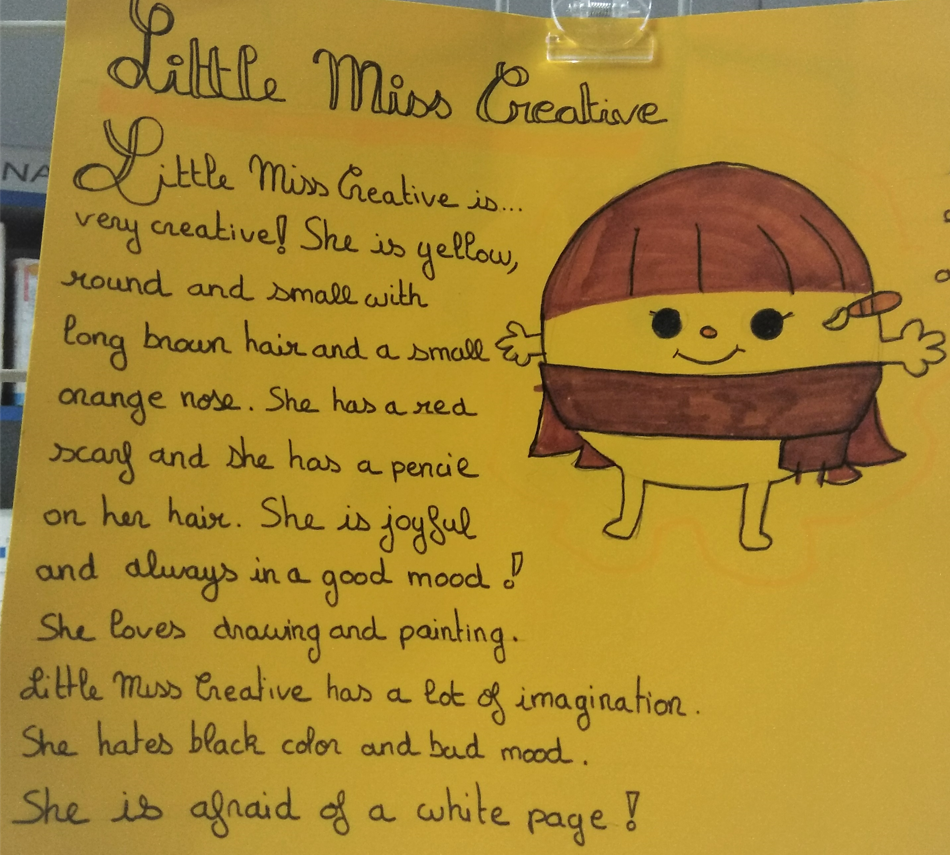 Little Miss Creative
Little Miss Creative is...
very creative! She is yellow,
round and small with
long brown hair and a small
orange nose. She has a red
scarf and she has a pencil
on her hair. She is joyful
and always in a good mood!
She loves drawing and painting.
Little Miss Creative has a lot of imagination.
She hates black color and bad mood.
She is afraid of a white page!
NA